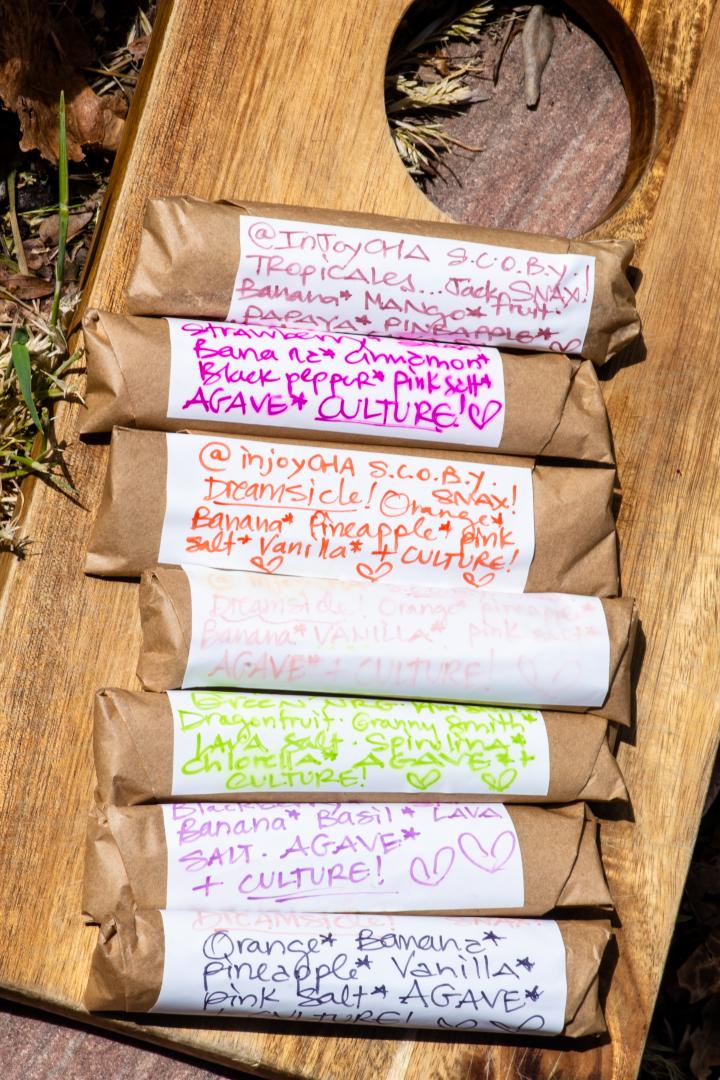 @InJoyCHA S.C.O.B.Y.!
TROPICALes... Jack SNAX!
Banana* MANgo* fruit.
PAPAYA* PINEAPPLE*
Strawberry
Banana* Cinnamon*
Black pepper* Pink salt*
AGAVE* CULTURE!
@injoyCHA S.C.O.B.Y.
Dreamsicle! SNAX!
Orange*
Banana* Pineapple* pink
salt* Vanilla* + CULTURE!
Dreamsicle! Orange* pineapple*
Banana* VANILLA* pink salt*
AGAVE* + CULTURE!
GREEN NRG
Dragonfruit. Granny Smith*
LAVA Salt. Spirulina*
Chlorella* AGAVE* +
CULTURE!
Blackberry
Banana* Basil* LAVA
SALT. AGAVE*
+ CULTURE!
DREAMSICLE! SNAX!
Orange* Banana*
pineapple* Vanilla*
pink Salt* AGAVE*
+ CULTURE!